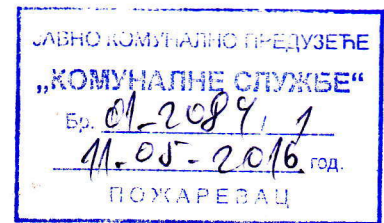 ЈАВНО КОМУНАЛНО ПРЕДУЗЕЋЕ
„КОМУНАЛНЕ СЛУЖБЕ“
Бр. 01-2084/1
11-05-2016 год.
ПОЖАРЕВАЦ